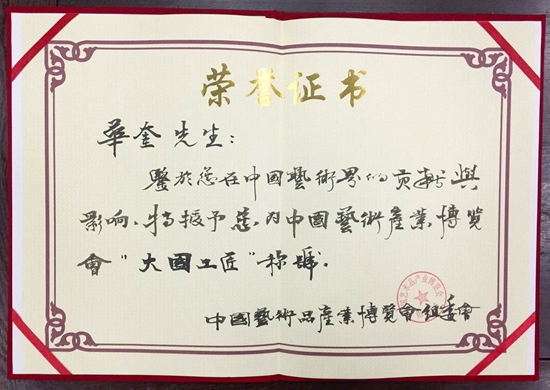 荣誉证书
華奎先生：
鑒於您在中國藝術界的貢獻與
影响、特授予您为中國藝術產業博覽
會“大國工匠”称號。
中國藝術品產業博覽會组委會